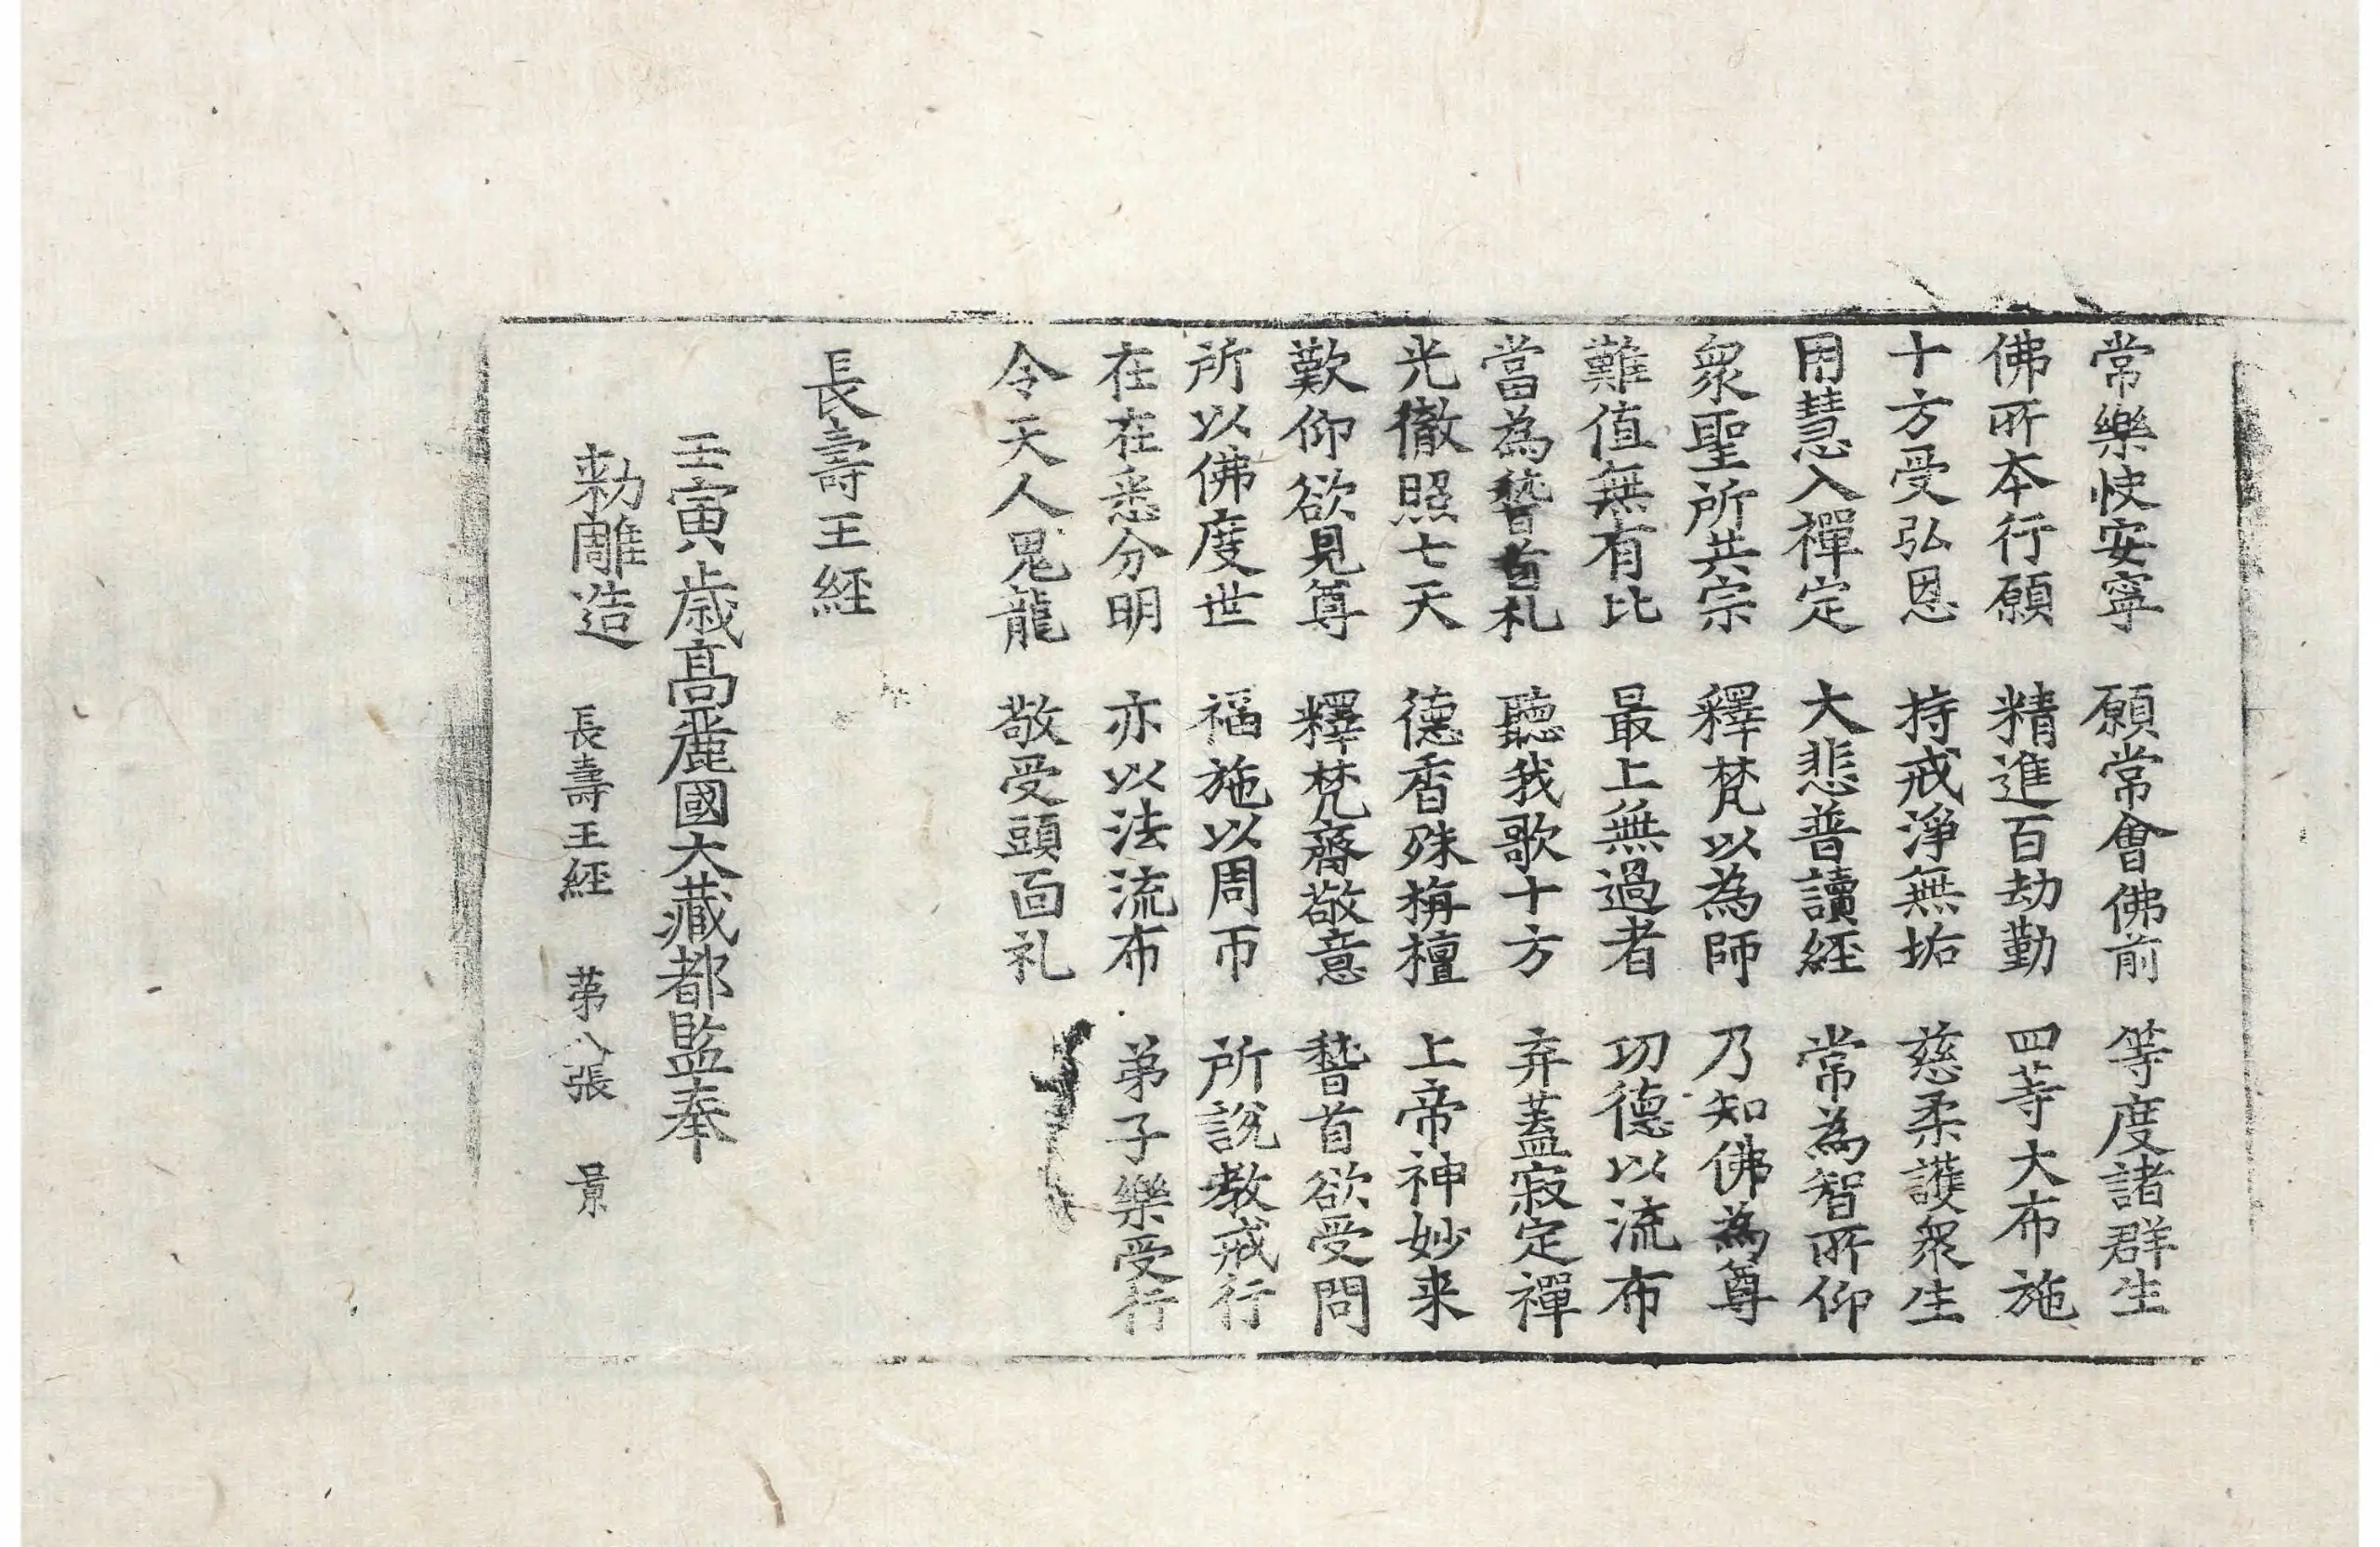 常樂快安寧 願常會佛前 等度諸群生
佛所本行願 精進百劫勤 四等大布施
十方受弘恩 持戒淨無垢 慈柔護衆生
用慧入禪定 大悲普讀經 常為智所仰
衆聖所共宗 釋梵以為師 乃知佛為尊
難值無有比 最上無過者 功德以流布
當為稽首礼 聽我歌十方 弃蓋寂定禪
光徹照七天 德香殊栴檀 上帝神妙来
歎仰欲見尊 釋梵齋敬意 稽首欲受問
所以佛度世 福施以周帀 所說教戒行
在在悉分明 亦以法流布 弟子樂受行
令天人鬼龍 敬受頭面礼
長壽王經
壬寅歲高麗國大藏都監奉
勑雕造 長壽王經 第八張 景